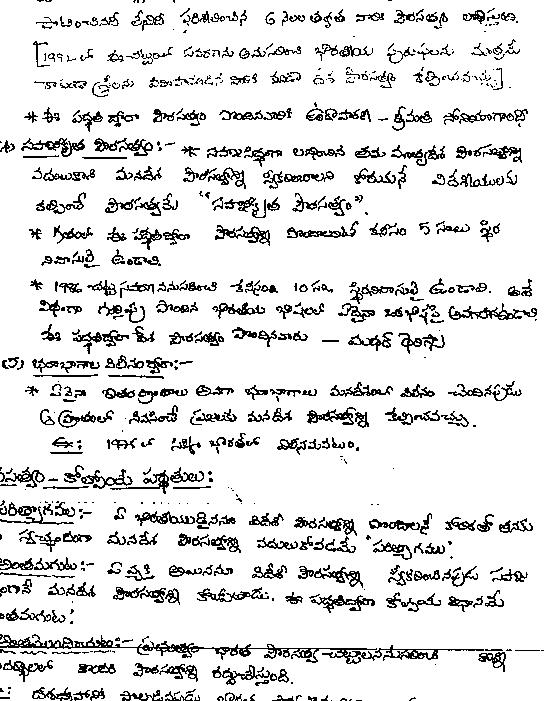 పాటించినచో దేశీని పరిశీలించిన 6 నెలల తర్వాత వారికి పౌరసత్వం లభిస్తుంది.
[1992 లో ఈ చట్టంలో సవరణను అనుసరించి భారతీయ పురుషులను మాత్రమే
కాకుండా స్త్రీలను వివాహమాడిన వారికి కూడా దేశ పౌరసత్వం కల్పించవచ్చు].
* ఈ పద్ధతి ద్వారా పౌరసత్వం పొందినవారికి ఉదాహరణ - శ్రీమతి సోనియాగాంధీ
4) సహజీకృత పౌరసత్వం:- * సహజసిద్ధంగా లభించిన తమ మాతృదేశ పౌరసత్వాన్ని
వదులుకొని మనదేశ పౌరసత్వాన్ని స్వీకరించాలని కోరుకునే విదేశీయులకు
కల్పించే పౌరసత్వమే "సహజీకృత పౌరసత్వం".
* గతంలో ఈ పద్ధతిద్వారా పౌరసత్వాన్ని పొందాలంటే కనీసం 5 సం॥లు స్థిర
నివాసులై ఉండాలి.
* 1986 చట్ట సవరణననుసరించి కనీసం 10 సం. స్థిరనివాసులై ఉండాలి. అదే
విధంగా గుర్తింపు పొందిన భారతీయ భాషలలో ఏదైనా ఒక భాషపై అవగాహన ఉండాలి
ఈ పద్ధతిద్వారా దేశ పౌరసత్వం పొందినవారు - మదర్ థెరిస్సా
5) భూభాగాల విలీనంద్వారా:-
* ఏదైనా ప్రాంతాలు అనగా భూభాగాలు మనదేశంలో విలీనం చెందినపుడు
ఆ ప్రాంతంలో నివసించే ప్రజలకు మనదేశ పౌరసత్వాన్ని కల్పించవచ్చు.
Ex: 1975 లో సిక్కిం భారత్‌లో విలీనమవటం.
పౌరసత్వం - కోల్పోయే పద్ధతులు:
పరిత్యాగము:- ఏ భారతీయుడైననూ విదేశీ పౌరసత్వాన్ని పొందాలనే కోరికతో తనకు
స్వచ్ఛందంగా మనదేశ పౌరసత్వాన్ని వదులుకోవడమే "పరిత్యాగము".
అంతమగుట:- ఏ వ్యక్తి అయిననూ విదేశీ పౌరసత్వాన్ని స్వీకరించినపుడు సహజ
ంగానే మనదేశ పౌరసత్వాన్ని కోల్పుతాడు. ఈ పద్ధతిద్వారా కోల్పోయే విధానమే
అంతమగుట!
ప్రభుత్వం భారత పౌరసత్వ చట్టాలననుసరించి కొన్ని
సందర్భాలలో కొందరి పౌరసత్వాన్ని రద్దుచేస్తుంది.